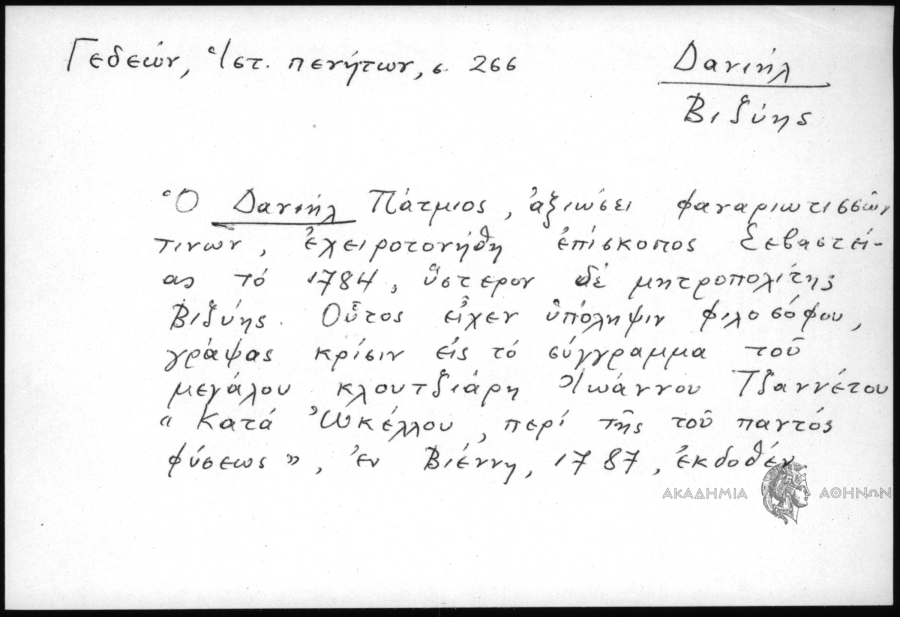 Γεδεών, Ἱστ. πενήτων, σ. 266
Δανιήλ
Βιζύης
Ὁ Δανιήλ Πάτμιος, ἀξιώσει φαναριωτισσῶν
τινων, ἐχειροτονήθη ἐπίσκοπος Σεβαστεί-
ας τό 1784, ὕστερον δέ μητροπολίτης
Βιζύης. Οὗτος εἶχεν ὑπόληψιν φιλοσόφου,
γράψας κρίσιν εἰς τό σύγγραμμα τοῦ
μεγάλου κλουτζιάρη Ἰωάννου Τζαννέτου
"Κατά Ὠκέλλου, περί τῆς τοῦ παντός
φύσεως", ἐν Βιέννῃ, 1787, ἐκδοθέν
ΑΚΑΔΗΜΙΑ ΑΘΗΝΩΝ